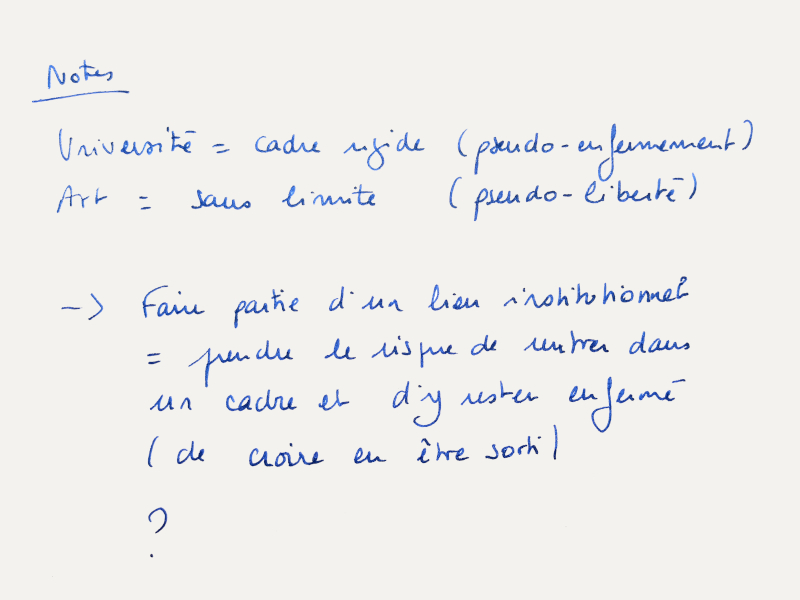 Notes
Université = cadre rigide (pseudo-enfermement)
Art = sans limite (pseudo-liberté)
-> Faire partie d'un lieu institutionnel
= prendre le risque de rentrer dans
un cadre et d'y rester enfermé
(de croire en être sorti)
?